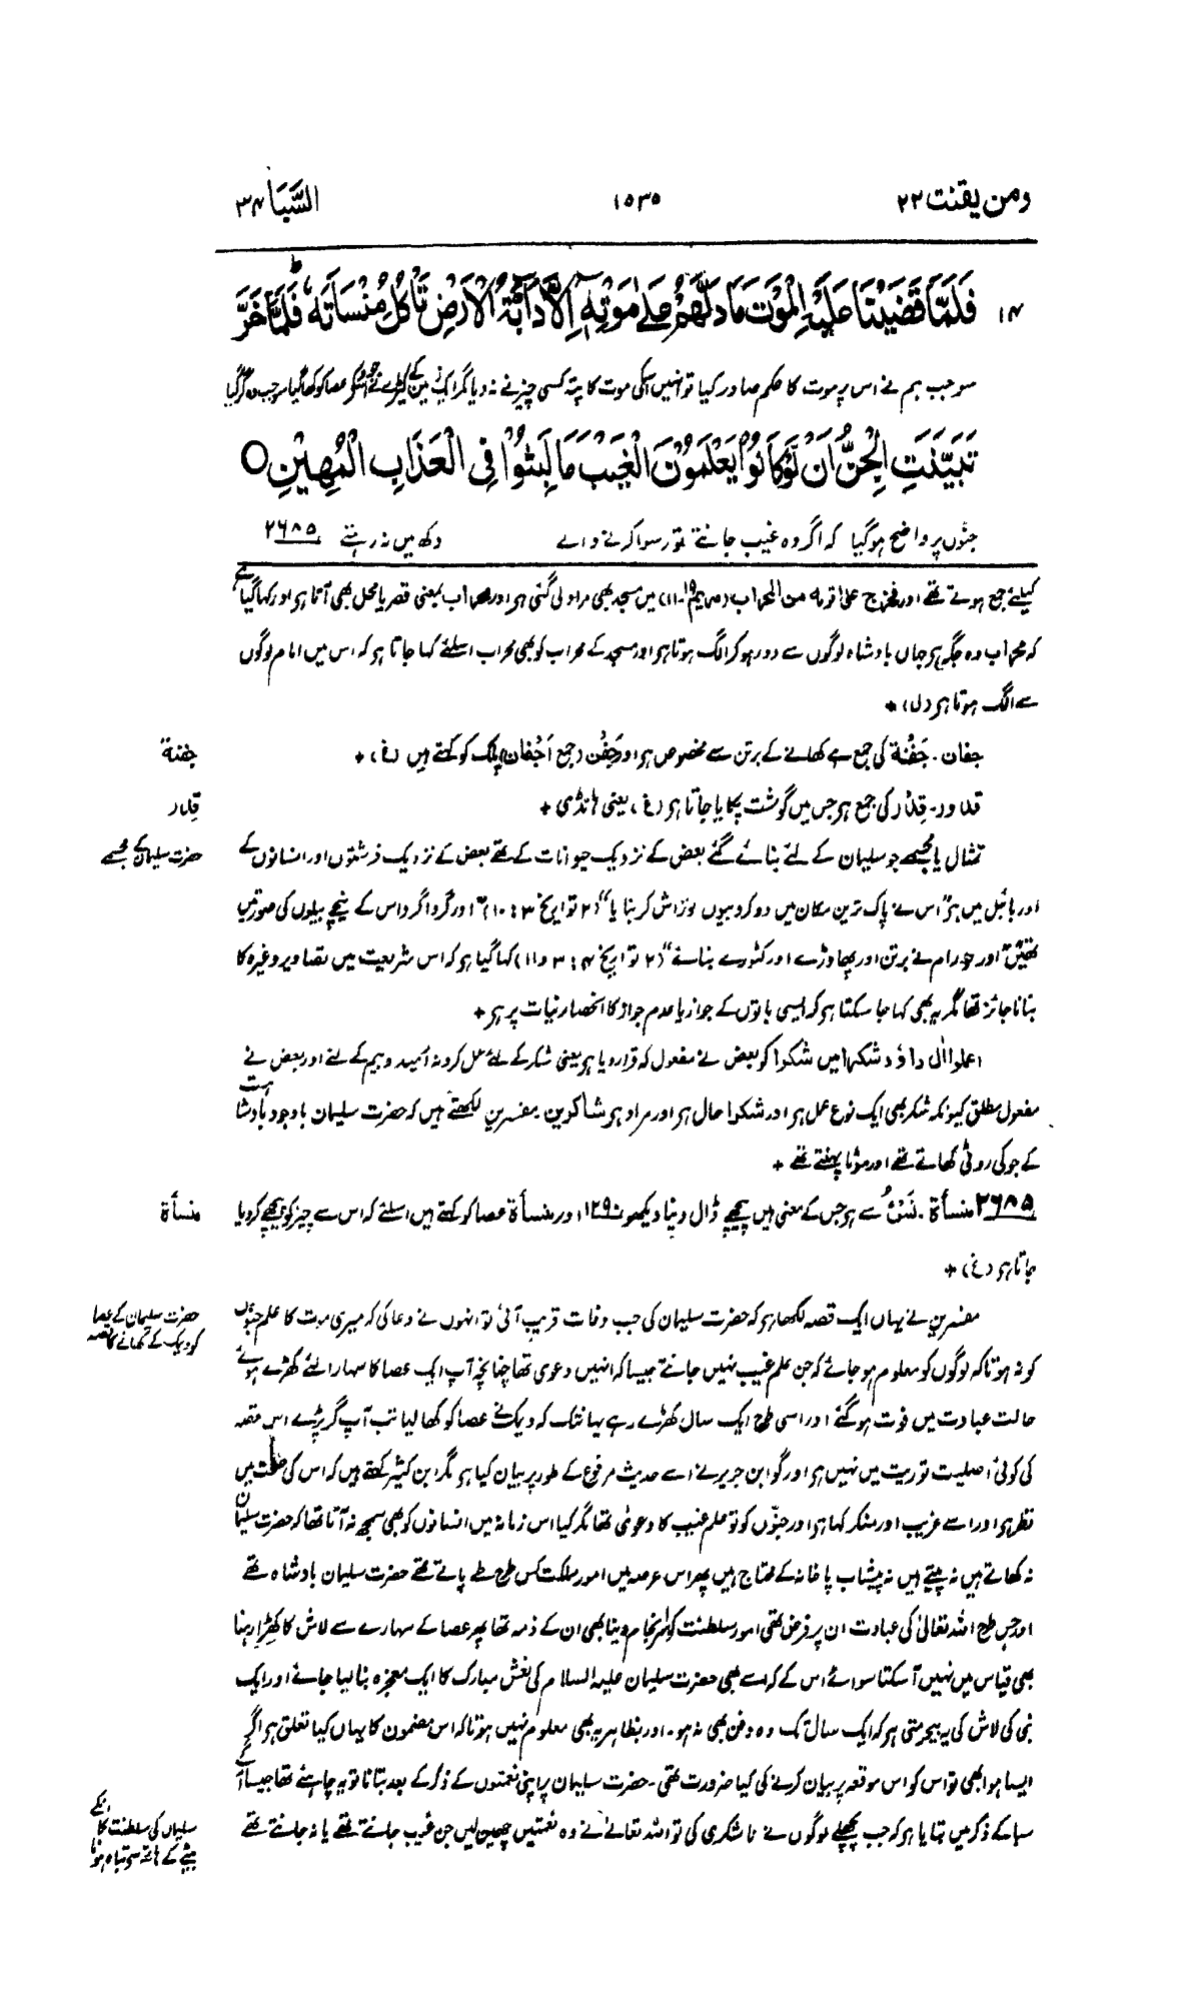 ومن یقنت ۲۲
۱۵۳۵
السَّبَا ۳۴
۱۴ فَلَمَّا قَضَيْنَا عَلَيْهِ الْمَوْتَ مَا دَلَّهُمْ عَلٰى مَوْتِهٖٓ اِلَّا دَآبَّةُ الْاَرْضِ تَاْكُلُ مِنْسَاَتَهٗ ۚ فَلَمَّا خَرَّ
سو جب ہم نے اس پر موت کا حکم صادر کیا تو انہیں اسکی موت کا پتہ کسی چیز نے نہ دیا مگر ایک زمین کے کیڑے نے جو اسکے عصا کو کھا گیا سو جب وہ گر گیا
تَبَيَّنَتِ الْجِنُّ اَنْ لَّوْ كَانُوْا يَعْلَمُوْنَ الْغَيْبَ مَا لَبِثُوْا فِى الْعَذَابِ الْمُهِيْنِ ○
جنّوں پر واضح ہوگیا کہ اگر وہ غیب جانتے تو رسوا کرنے والے دکھ میں نہ رہتے ۲۶۸۵
کیلئے جمع ہوتے تھے اور فخرج علی قومہ من المحراب (مریم ۱۹-۱۱) میں مسجد بھی مراد لی گئی ہر اور محراب بمعنی قصر یا محل بھی آتا ہر اور کہا گیا ہے
کہ محراب وہ جگہ ہر جہاں بادشاہ لوگوں سے دور ہو کر الگ ہوتا ہر اور مسجد کے محراب کو بھی محراب اسلئے کہا جاتا ہر کہ اس میں امام لوگوں
سے الگ ہوتا ہر (ل) ٭
جفان۔ جَفْنة کی جمع ہے کھانے کے برتن سے مخصوص ہر اور جَفْن (جمع اَجْفان) پلک کو کہتے ہیں (غ) ٭
جفنة
قدور۔ قِدْر کی جمع ہر جس میں گوشت پکایا جاتا ہر (غ) یعنی ہانڈی ٭
قدر
تمثال یا مجسمے جو سلیمان کے لئے بنائے گئے بعض کے نزدیک حیوانات کے تھے بعض کے نزدیک فرشتوں اور انسانوں کے
حضرت سلیمان کے مجسمے
اور بائبل میں ہر ”اس نے پاک ترین مکان میں دو کروبیوں کو تراش کر بنایا“ (۲ تواریخ ۳: ۱۰) ”اور گرداگرد اس کے نیچے بیلوں کی صورتیں
تھیں“ اور حورام نے برتن اور پھاوڑے اور کٹورے بنائے“ (۲ تواریخ ۴: ۳ و ۱۱) کہا گیا ہر کہ اس شریعت میں تصاویر وغیرہ کا
بنانا جائز تھا مگر یہ بھی کہا جا سکتا ہر کہ ایسی باتوں کے جواز یا عدم جواز کا انحصار نیات پر ہر ٭
اعملوا اٰل داؤد شکرا میں شکرا کو بعض نے مفعول لہ قرار دیا ہر یعنی شکر کے لئے عمل کرو نہ اُمید و بیم کے لئے اور بعض نے
مفعول مطلق کیونکہ شکر بھی ایک نوع عمل ہر اور شکرا حال ہر اور مراد ہر شاکرین۔ مفسرین لکھتے ہیں کہ حضرت سلیمان باوجود بادشاہت
کے جو کی روٹی کھاتے تھے اور موٹا پہنتے تھے ٭
۲۶۸۵ منسأة۔ نَسْئٌ سے ہر جس کے معنی ہیں پیچھے ڈال دینا دیکھو ۱۲۹۰ اور منسأة عصا کو کہتے ہیں اسلئے کہ اس سے چیز کو پیچھے کر دیا
منسأة
جاتا ہر (غ) ٭
مفسرین نے یہاں ایک قصہ لکھا ہر کہ حضرت سلیمان کی جب وفات قریب آئی تو انہوں نے دعا کی کہ میری موت کا علم جنّوں
حضرت سلیمان کے عصا
کو دیمک کے کھانے کا قصہ
کو نہ ہو تاکہ لوگوں کو معلوم ہو جائے کہ جن علم غیب نہیں جانتے جیسا کہ انہیں دعوی تھا چنانچہ آپ ایک عصا کا سہارا لئے کھڑے ہوئے
حالت عبادت میں فوت ہو گئے اور اسی طرح ایک سال کھڑے رہے یہانتک کہ دیمک نے عصا کو کھا لیا تب آپ گر پڑے اس قصہ
کی کوئی اصلیت توریت میں نہیں ہر اور گو ابن جریر نے اسے حدیث مرفوع کے طور پر بیان کیا ہر مگر ابن کثیر کہتے ہیں کہ اس کی صحت میں
نظر ہر اور اسے غریب اور منکر کہا ہر اور جنّوں کو تو علم غیب کا دعویٰ تھا مگر کیا اس زمانہ میں انسانوں کو بھی سمجھ نہ آتا تھا کہ حضرت سلیمان
نہ کھاتے ہیں نہ پیتے ہیں نہ پیشاب پاخانہ کے محتاج ہیں پھر اس عرصہ میں امور مملکت کس طرح طے پاتے تھے حضرت سلیمان بادشاہ تھے
اور جس طرح اللہ تعالیٰ کی عبادت ان پر فرض تھی امور سلطنت کو سر انجام دینا بھی ان کے ذمہ تھا پھر عصا کے سہارے سے لاش کا کھڑا رہنا
بھی قیاس میں نہیں آ سکتا سوائے اس کے کہ اسے بھی حضرت سلیمان علیہ السلام کی نعش مبارک کا ایک معجزہ بنا لیا جائے اور ایک
نبی کی لاش کی یہ بیحرمتی ہر کہ ایک سال تک وہ دفن بھی نہ ہو۔ اور بظاہر یہ بھی معلوم نہیں ہوتا کہ اس مضمون کا یہاں کیا تعلق ہر اگر
ایسا ہوا بھی تو اس کو اس موقعہ پر بیان کرنے کی کیا ضرورت تھی۔ حضرت سلیمان پر اپنی نعمتوں کے ذکر کے بعد بتانا تو یہ چاہئے تھا جیسا آگے
سبا کے ذکر میں بتایا ہر کہ جب پچھلے لوگوں نے ناشکری کی تو اللہ تعالےٰ نے وہ نعمتیں چھین لیں جن غیب جانتے تھے یا نہ جانتے تھے
سلیمان کی سلطنت کا انکے
بیٹے کے ہاتھ سے تباہ ہونا